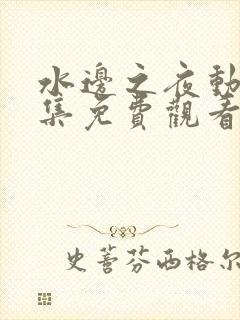 水邊之夜動
集免費觀看
史蒼芬西格尔